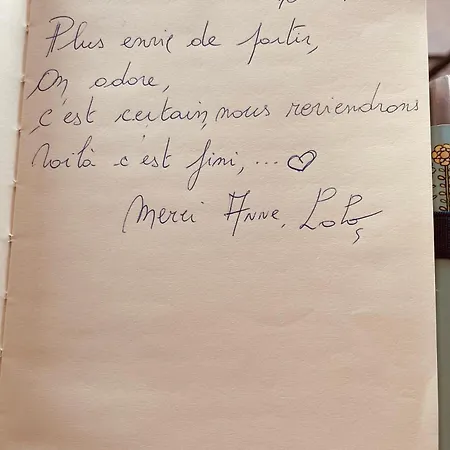 Plus envie de partir,
On adore,
c'est certain, nous reviendrons
Voilà c'est fini, ... ♡
Merci Anne.